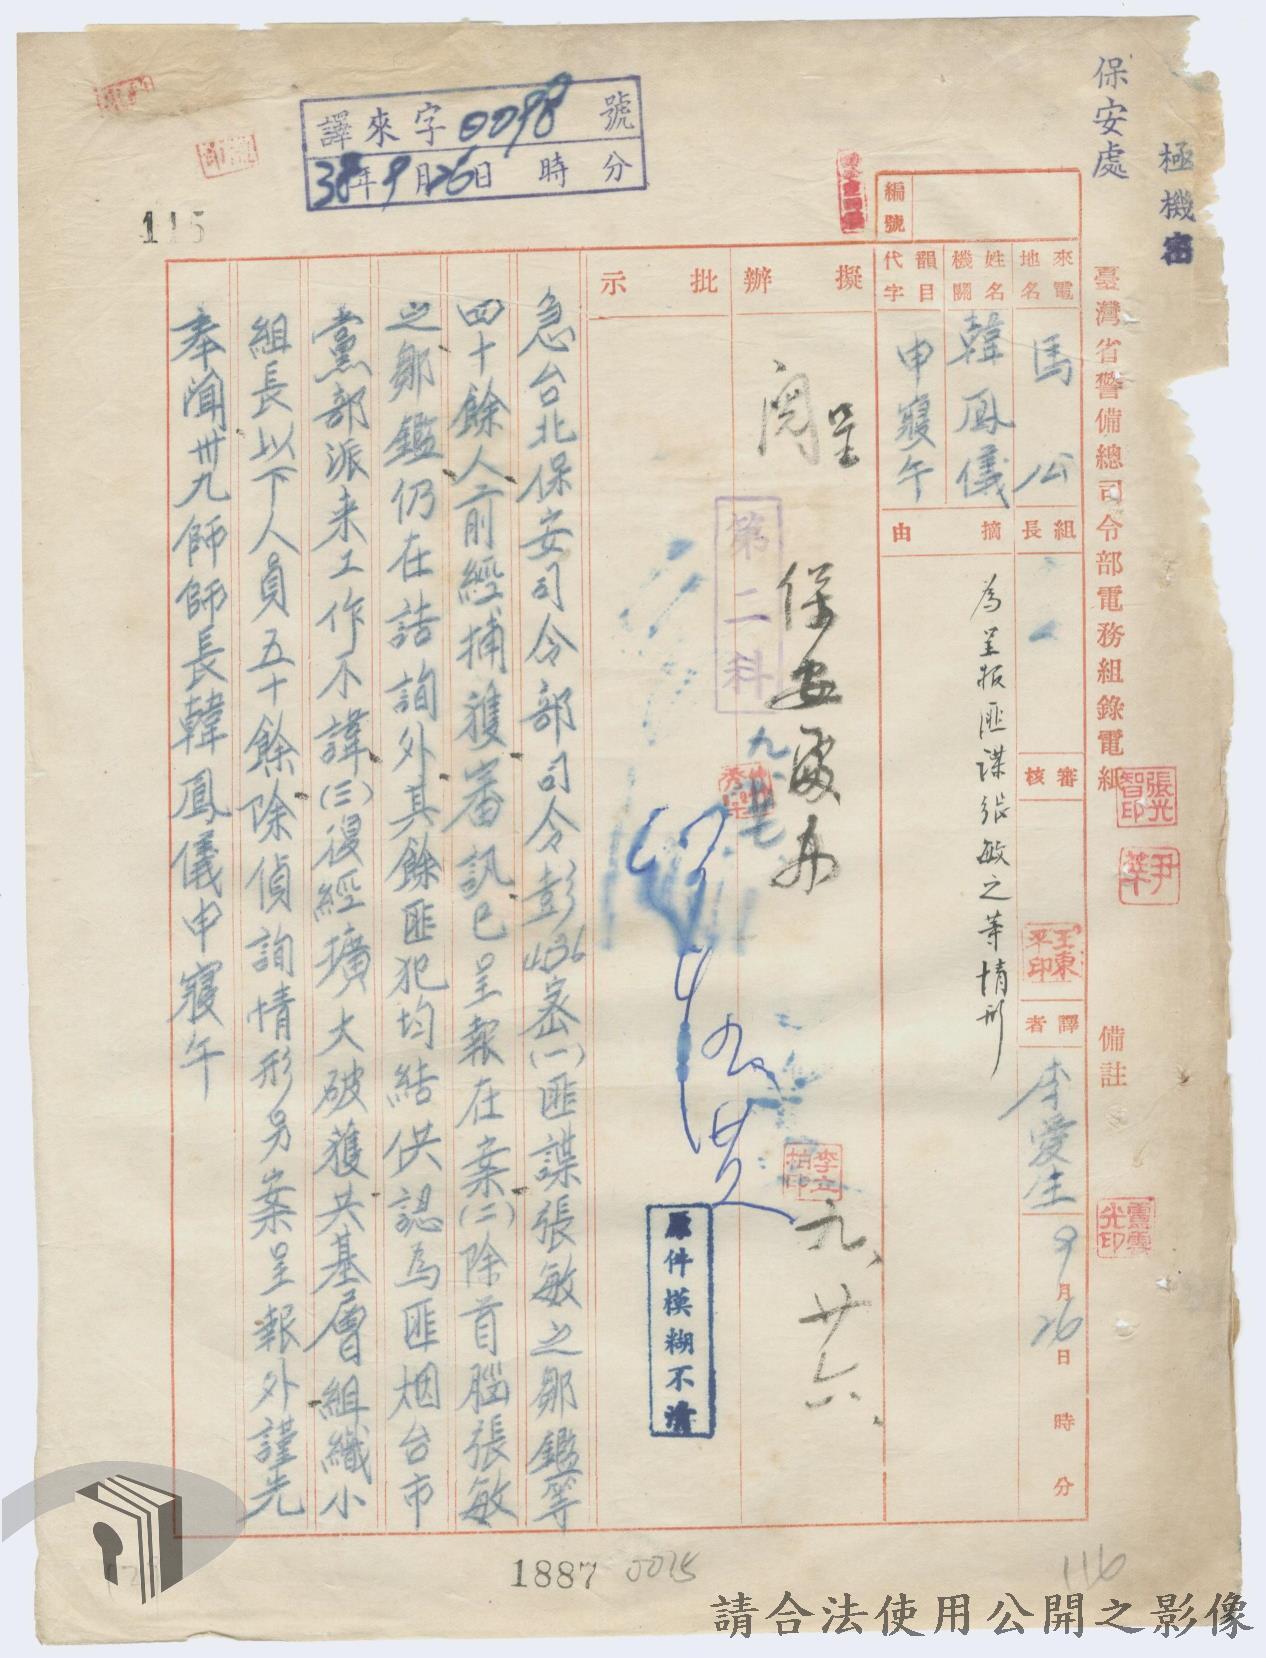 極機密
保安處
臺灣省警備總司令部電務組錄電紙
備註
張光智印
尹莘
譯來字0098號
38年9月26日 時 分
115
編號
來電地名
馬公
姓名機關
韓鳳儀
韻目代字
申寢午
組長
審核
王東平印
譯者
李愛生
9月26日 時 分
摘由
為呈報匪諜張敏之等情形
擬辦
呈
閱
保安處
九、廿六、
第二科
批示
原件模糊不清
急台北保安司令部司令彭4036密(一)匪諜張敏之鄒鑑等
四十餘人前經捕獲審訊已呈報在案(二)除首腦張敏
之鄒鑑仍在詰詢外其餘匪犯均結供認為匪烟台市
黨部派来工作不諱(三)復經擴大破獲共基層組織小
組長以下人員五十餘除偵詢情形另案呈報外謹先
奉聞卅九師師長韓鳳儀申寢午
1887
0075
116
請合法使用公開之影像